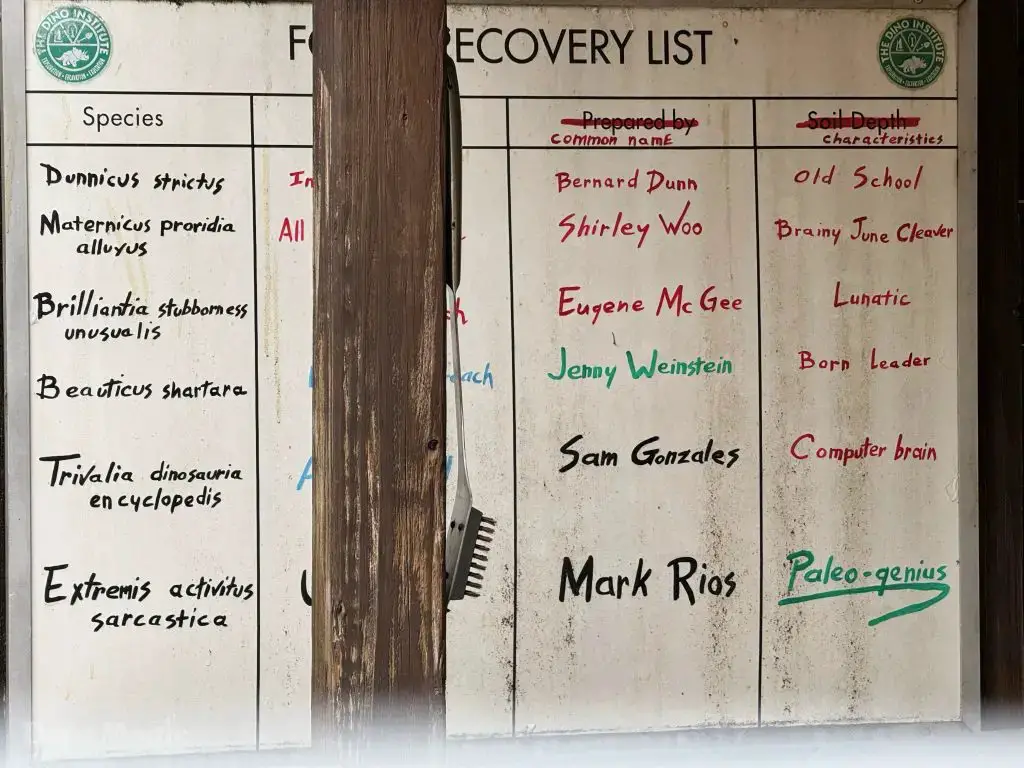 THE DINO INSTITUTE
EXPLORATION • EXCAVATION • EXULTATION
RECOVERY LIST
THE DINO INSTITUTE
EXPLORATION • EXCAVATION • EXULTATION
Species
Prepared by
common name
Soil Depth
characteristics
Dunnicus strictus
Bernard Dunn
Old School
Maternicus proridia
alluyus
All
Shirley Woo
Brainy June Cleaver
Brilliantia stubborness
unusualis
Eugene McGee
Lunatic
Beauticus shartara
Jenny Weinstein
Born Leader
Trivalia dinosauria
encyclopedis
Sam Gonzales
Computer brain
Extremis activitus
sarcastica
Mark Rios
Paleo-genius